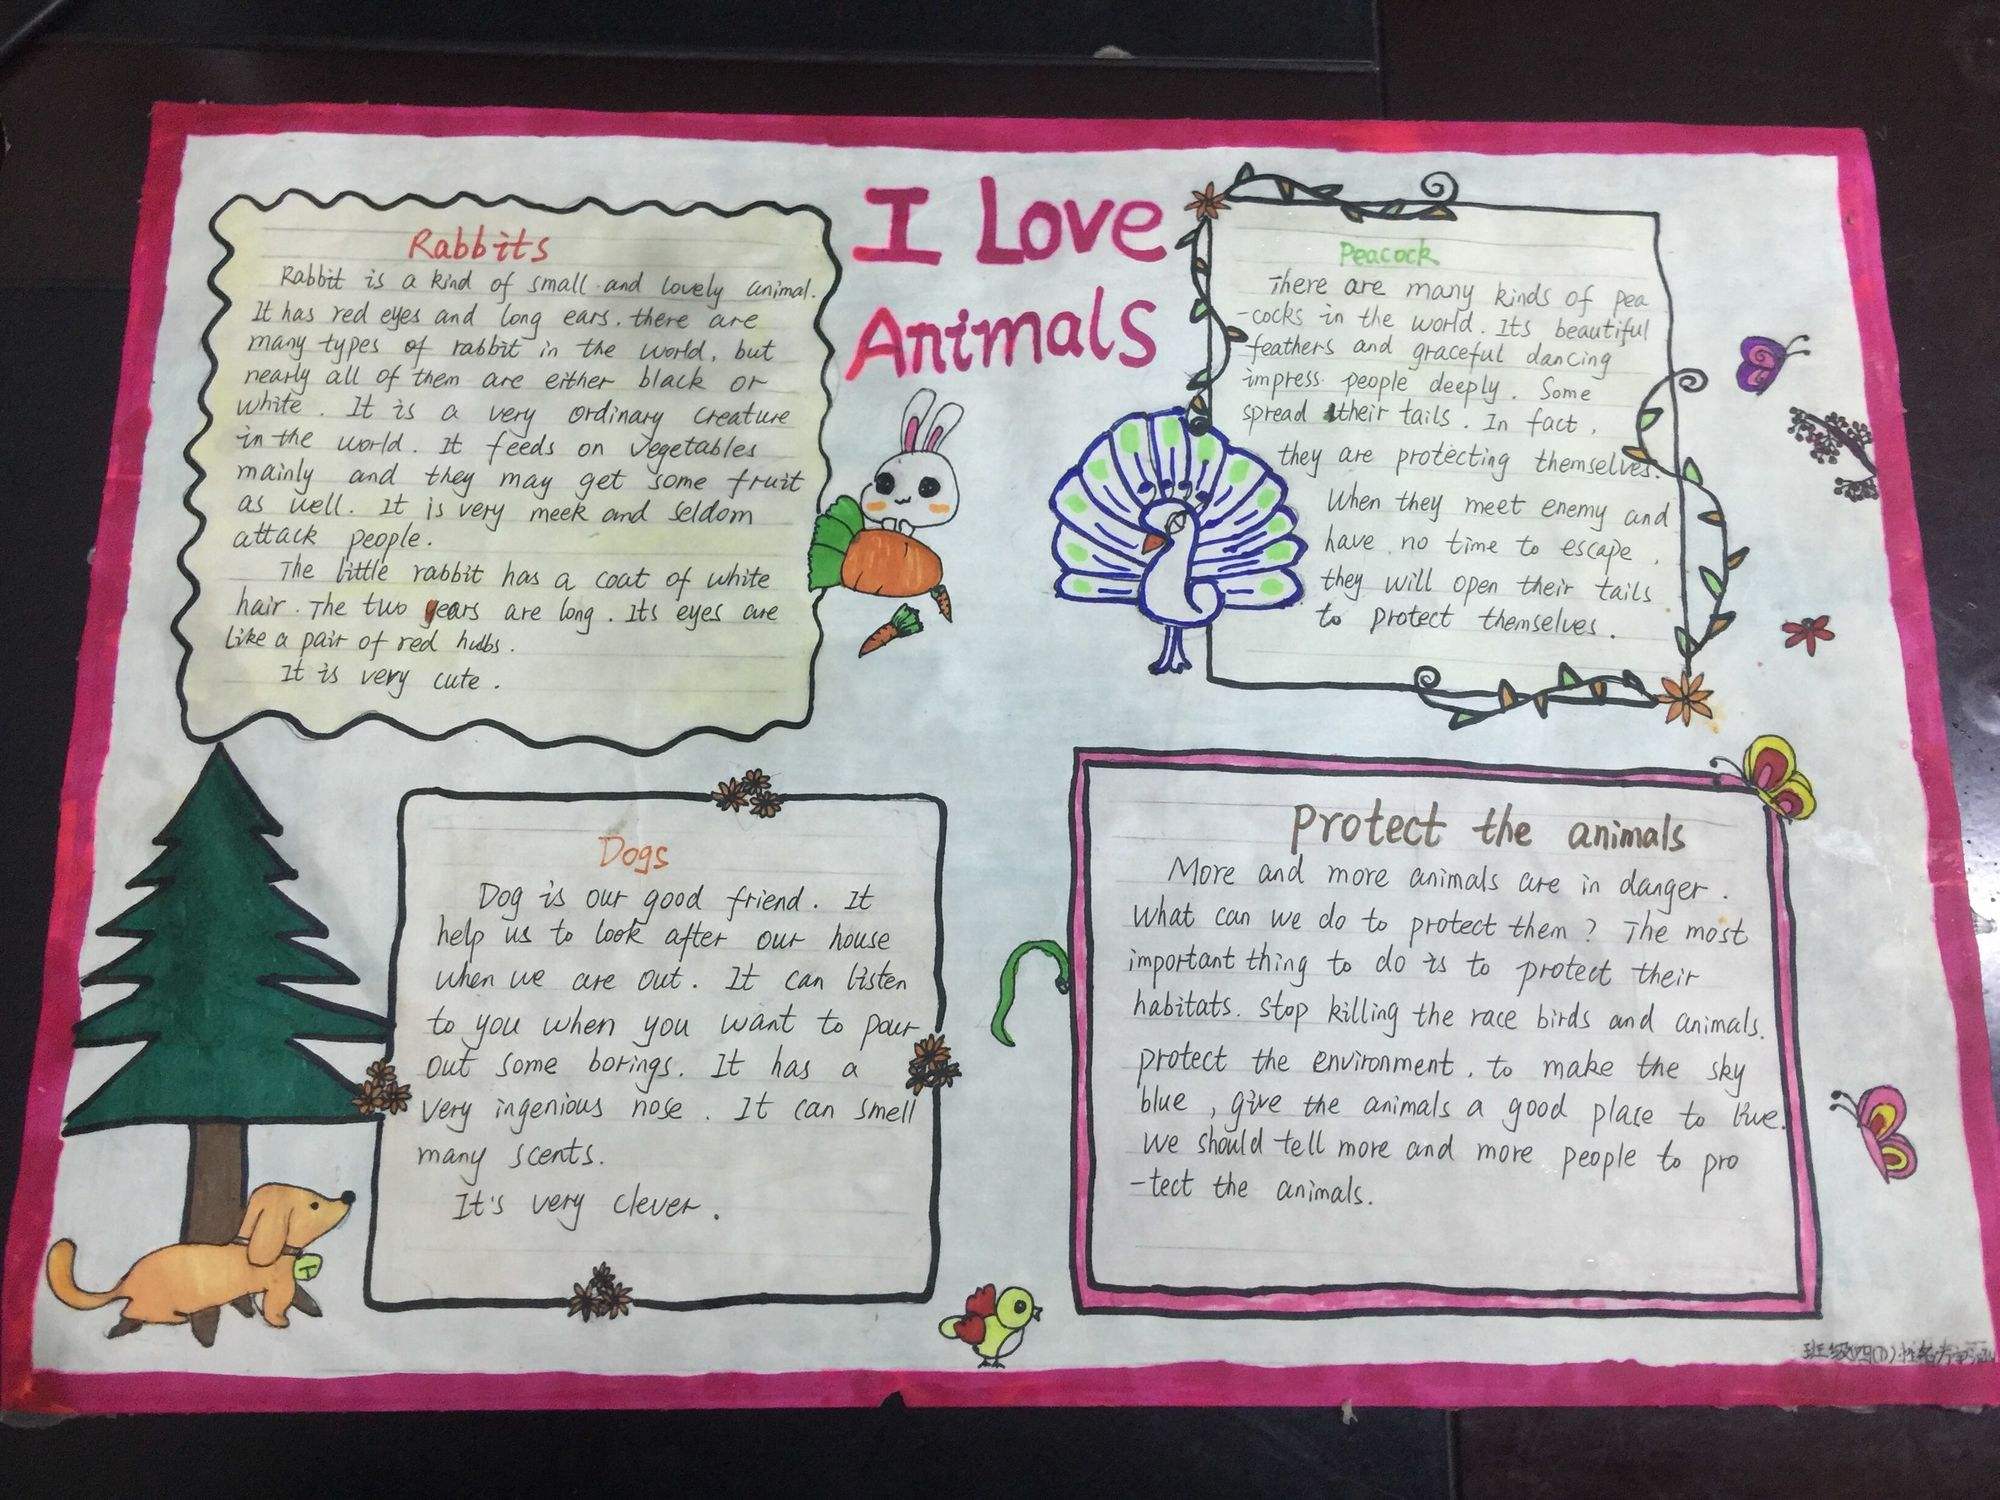 I Love
Animals
Rabbits
Rabbit is a kind of small and lovely animal.
It has red eyes and long ears. there are
many types of rabbit in the world, but
nearly all of them are either black or
white. It is a very ordinary creature
in the world. It feeds on vegetables
mainly and they may get some fruit
as well. It is very meek and seldom
attack people.
The little rabbit has a coat of white
hair. The two years are long. Its eyes are
like a pair of red hubs.
It is very cute.
Peacock
There are many kinds of pea
-cocks in the world. Its beautiful
feathers and graceful dancing
impress people deeply. Some
spread their tails. In fact,
they are protecting themselves.
When they meet enemy and
have no time to escape,
they will open their tails
to protect themselves.
Dogs
Dog is our good friend. It
help us to look after our house
when we are out. It can listen
to you when you want to pour
out some borings. It has a
very ingenious nose. It can smell
many scents.
It's very clever.
Protect the animals
More and more animals are in danger.
What can we do to protect them? The most
important thing to do is to protect their
habitats. Stop killing the race birds and animals.
protect the environment, to make the sky
blue, give the animals a good place to live.
We should tell more and more people to pro
-tect the animals.
班级四(1)姓名